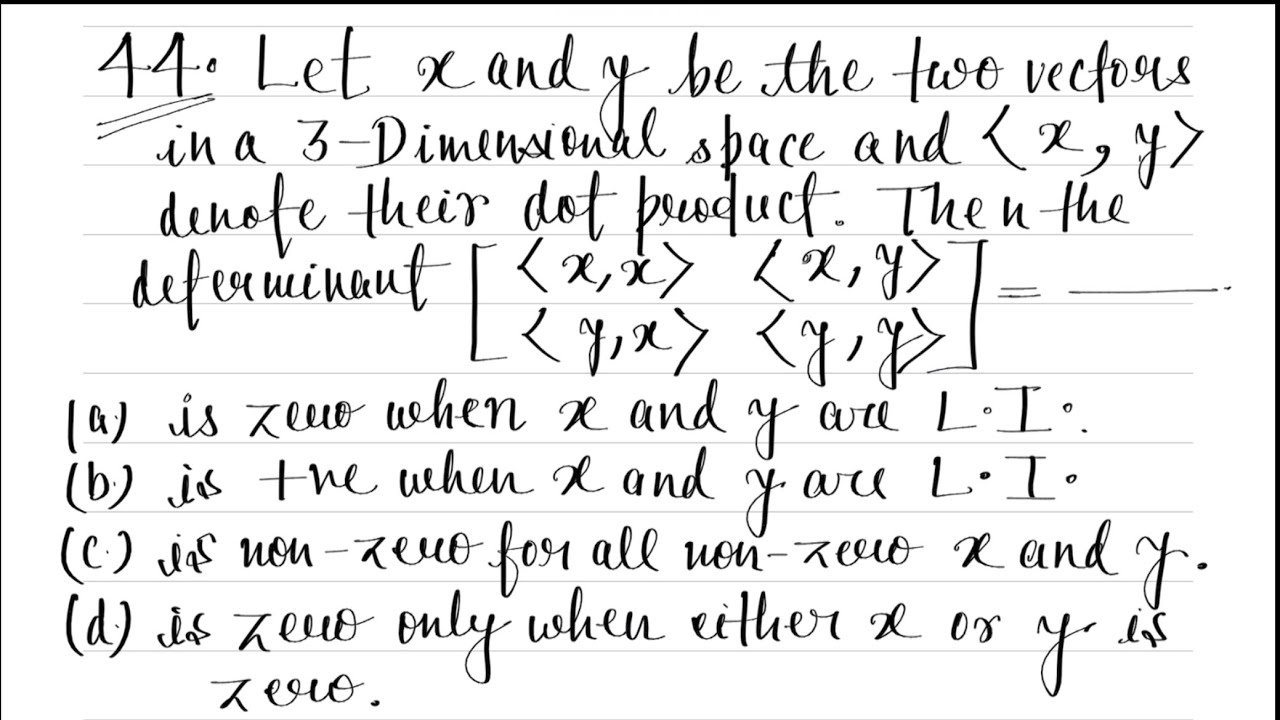 44. Let x and y be the two vectors
in a 3-Dimensional space and <x, y>
denote their dot product. Then the
determinant [<x,x> <x,y>
<y,x> <y,y>] = ____.
(a) is zero when x and y are L.I.
(b) is +ve when x and y are L.I.
(c.) is non-zero for all non-zero x and y.
(d.) is zero only when either x or y is
zero.